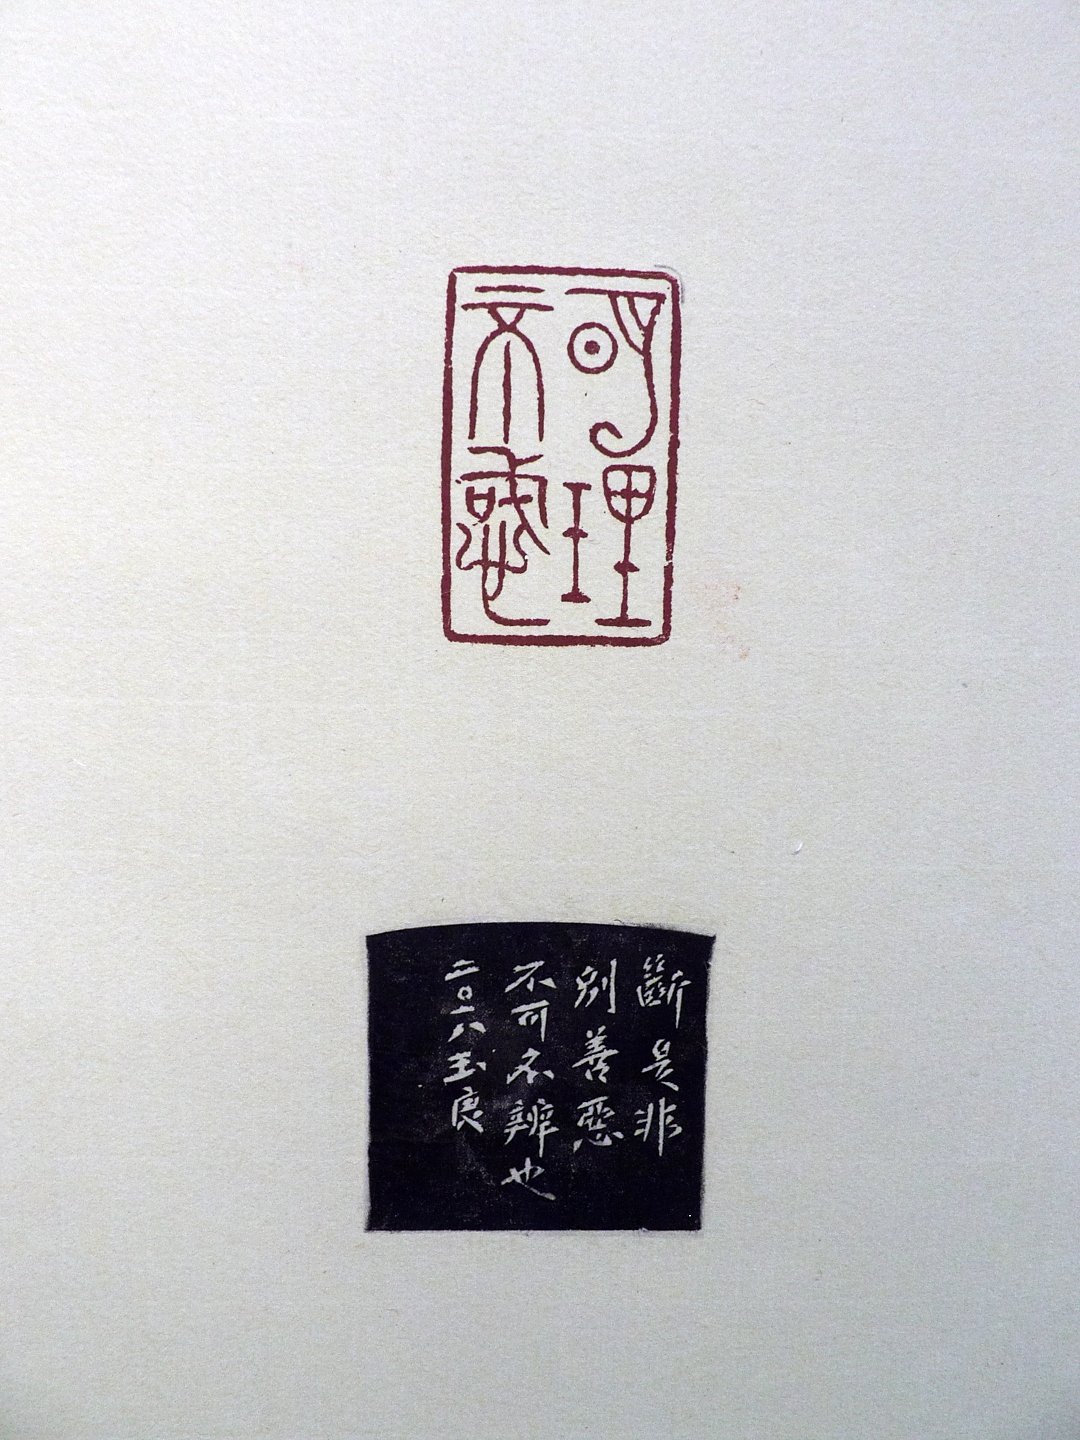 明理
不惑
斷是非
別善惡
不可不辨也
二〇一八玉庚